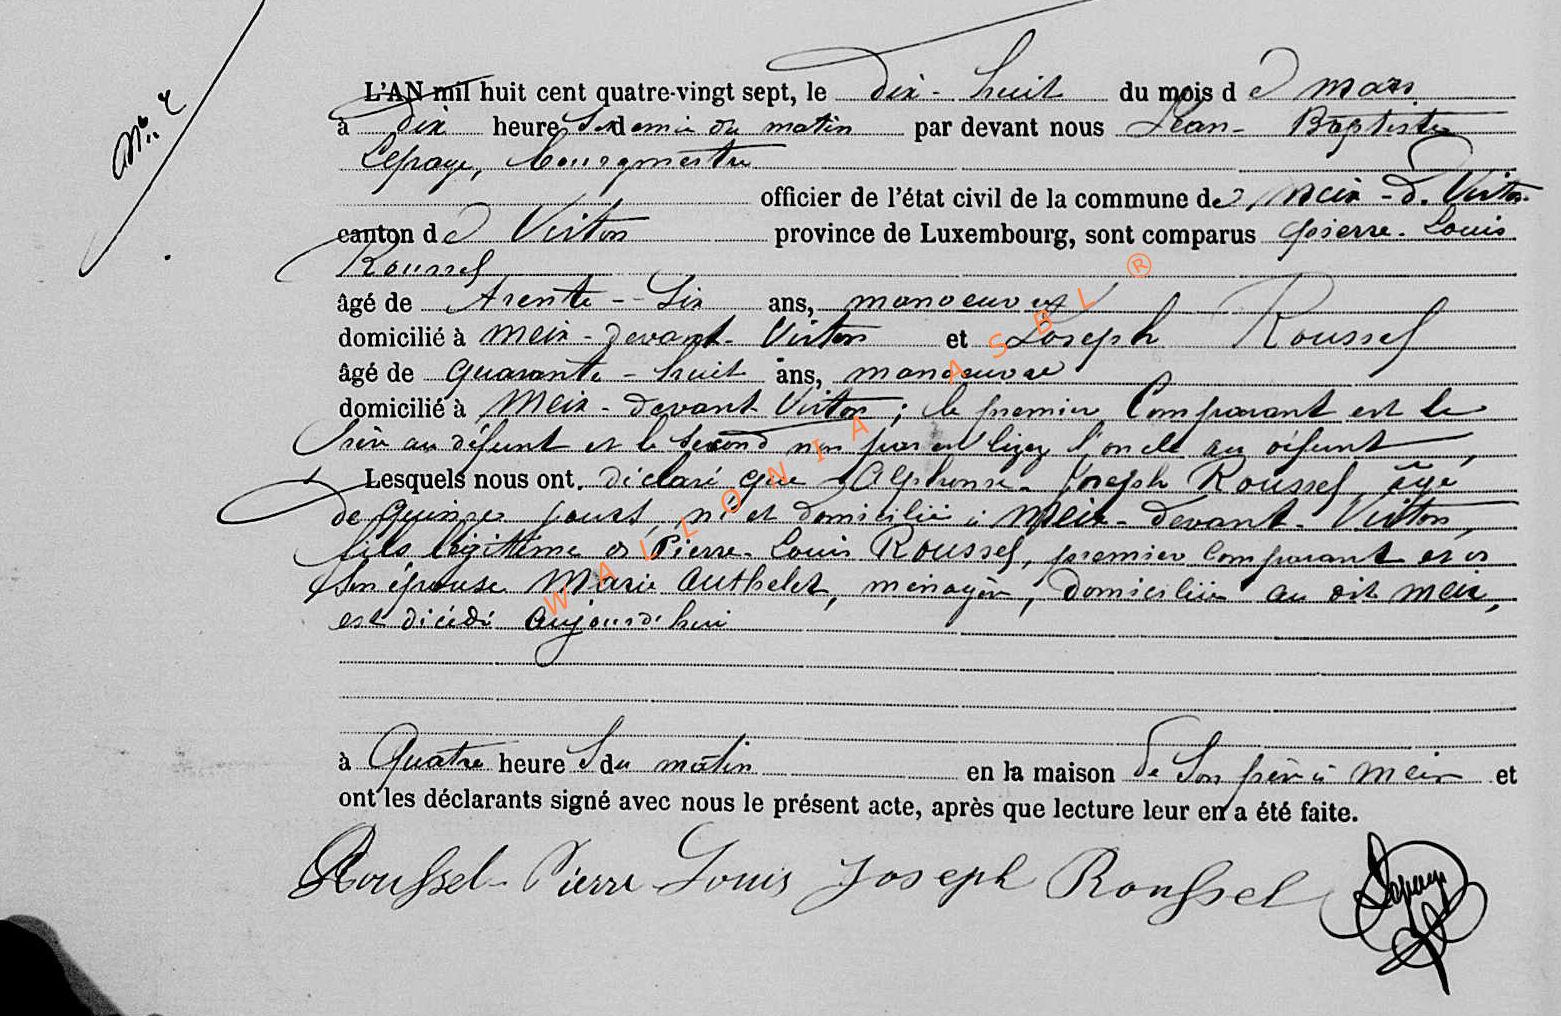 N° 2
L'AN mil huit cent quatre-vingt sept, le dix-huit du mois de mars
à dix heures et demie du matin par devant nous Jean-Baptiste
Lepage, bourgmestre
officier de l'état civil de la commune de Meix-d.-Virton
canton de Virton province de Luxembourg, sont comparus Pierre-Louis
Roussel
âgé de trente-six ans, manoeuvre
domicilié à Meix-devant-Virton et Joseph Roussel
âgé de quarante-huit ans, manoeuvre
domicilié à Meix-devant-Virton; le premier comparant est le
père au défunt et le second non pas en lisez l'oncle au défunt,
Lesquels nous ont déclaré que Alphonse-Joseph Roussel, âgé
de quinze jours, né et domicilié à Meix-devant-Virton,
fils légitime de Pierre-Louis Roussel, premier comparant et de
son épouse Marie Authelet, ménagère, domiciliée au dit Meix,
est décédé aujourd'hui
à quatre heures du matin en la maison de son père à Meix et
ont les déclarants signé avec nous le présent acte, après que lecture leur en a été faite.
Roussel-Pierre Louis Joseph Roussel Lepage
WALLONIA ASBL ®